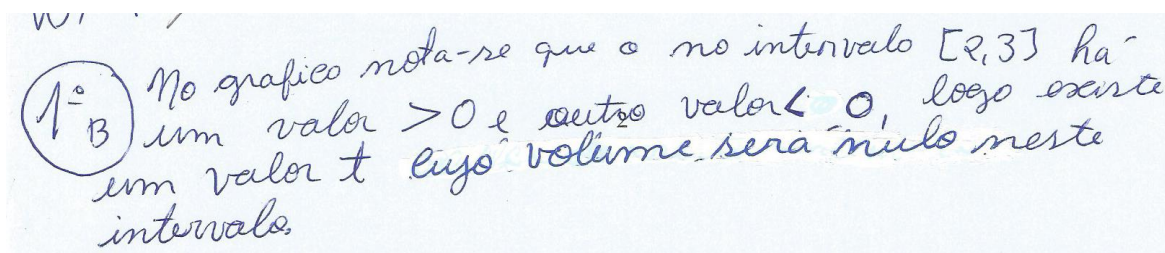 1º B No grafico nota-se que o no intervalo [2,3] há
um valor >0 e outro valor < 0, logo existe
um valor t cujo volume será nulo neste
intervalo.